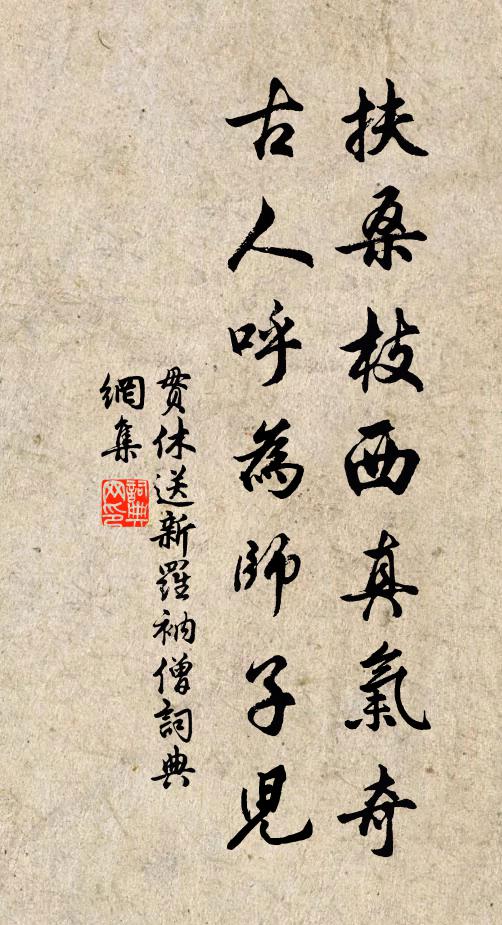 扶桑枝西真氣奇
古人呼為師子兒
貫休送新羅衲僧詞典
網集
詞典
网印